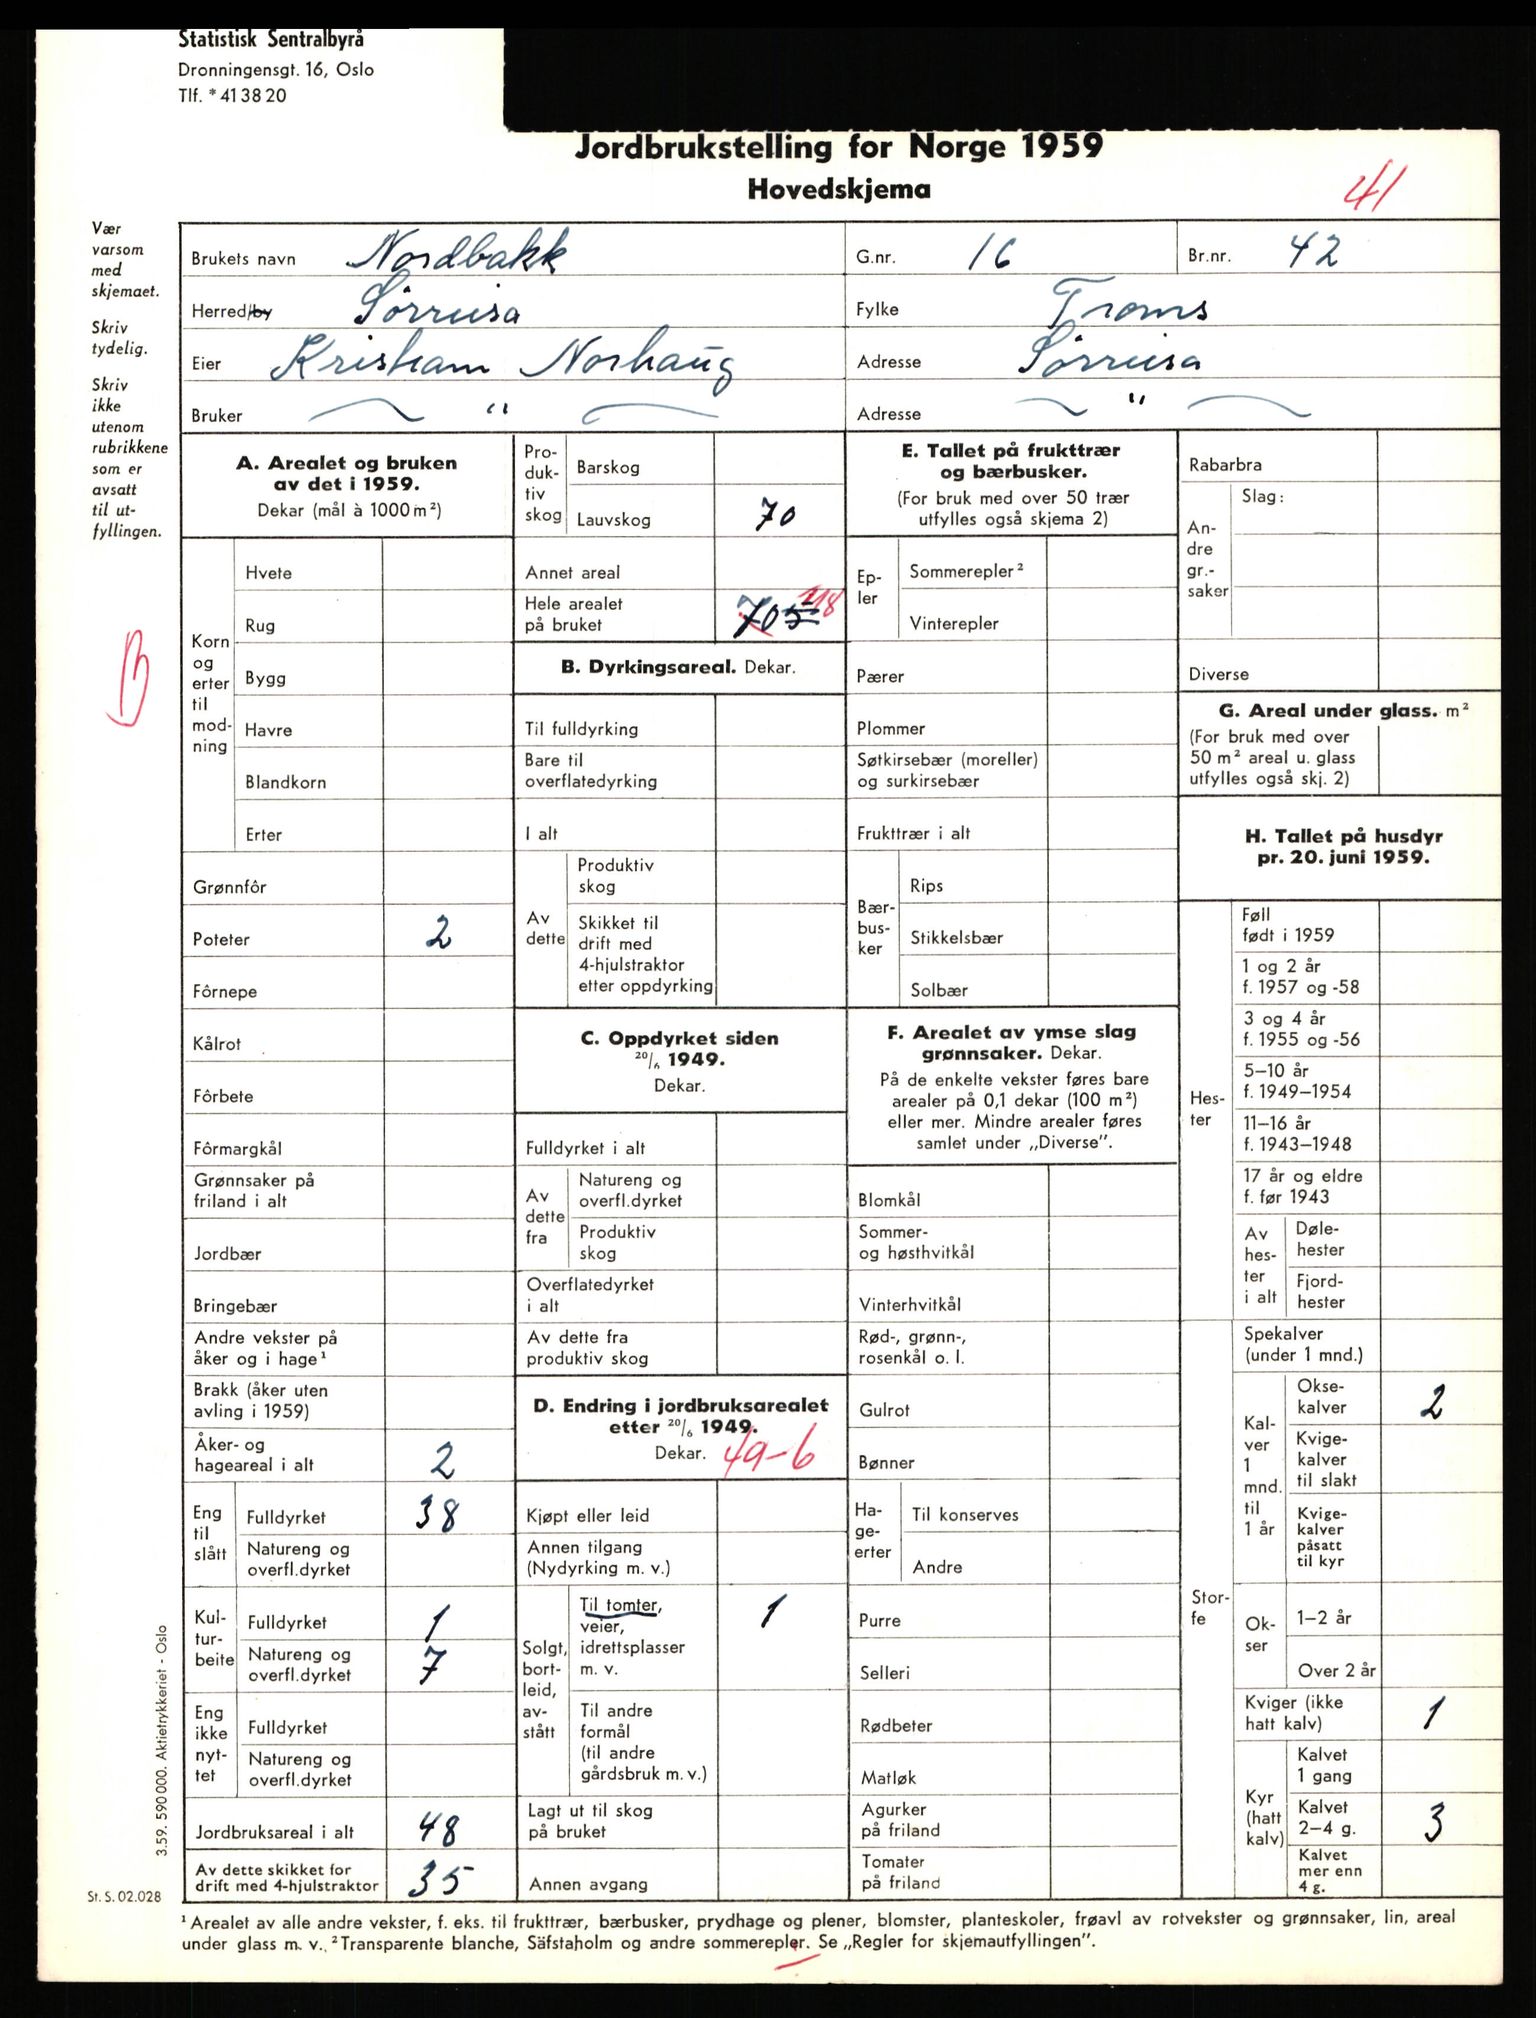 Statistisk Sentralbyrå
Dronningensgt. 16, Oslo
Tlf. * 41 38 20
Jordbrukstelling for Norge 1959
Hovedskjema
41
Vær varsom med skjemaet.
Skriv tydelig.
Skriv ikke utenom rubrikkene som er avsatt til ut-fyllingen.
B
Brukets navn Nordbakk G.nr. 16 Br.nr. 42
Herred/by Sørreisa Fylke Troms
Eier Kristian Norhaug Adresse Sørreisa
Bruker — " — Adresse — " —
A. Arealet og bruken av det i 1959.
Dekar (mål à 1000 m²)
Korn og erter til mod-ning
Hvete
Rug
Bygg
Havre
Blandkorn
Erter
Grønnfôr
Poteter 2
Fôrnepe
Kålrot
Fôrbete
Fôrmargkål
Grønnsaker på friland i alt
Jordbær
Bringebær
Andre vekster på åker og i hage¹
Brakk (åker uten avling i 1959)
Åker- og hageareal i alt 2
Eng til slått
Fulldyrket 38
Natureng og overfl.dyrket
Kul-tur-beite
Fulldyrket 1
Natureng og overfl.dyrket 7
Eng ikke nyt-tet
Fulldyrket
Natureng og overfl.dyrket
Jordbruksareal i alt 48
Av dette skikket for drift med 4-hjulstraktor 35
Pro-duk-tiv skog
Barskog
Lauvskog 70
Annet areal
Hele arealet på bruket 705 118
B. Dyrkingsareal. Dekar.
Til fulldyrking
Bare til overflatedyrking
I alt
Av dette
Produktiv skog
Skikket til drift med 4-hjulstraktor etter oppdyrking
C. Oppdyrket siden 20/6 1949.
Dekar.
Fulldyrket i alt
Av dette fra
Natureng og overfl.dyrket
Produktiv skog
Overflatedyrket i alt
Av dette fra produktiv skog
D. Endring i jordbruksarealet etter 20/6 1949.
Dekar. 49-6
Kjøpt eller leid
Annen tilgang (Nydyrking m. v.)
Solgt, bort-leid, av-stått
Til tomter, veier, idrettsplasser m. v. 1
Til andre formål (til andre gårdsbruk m. v.)
Lagt ut til skog på bruket
Annen avgang
E. Tallet på frukttrær og bærbusker.
(For bruk med over 50 trær utfylles også skjema 2)
Ep-ler
Sommerepler²
Vinterepler
Pærer
Plommer
Søtkirsebær (moreller) og surkirsebær
Frukttrær i alt
Bær-bus-ker
Rips
Stikkelsbær
Solbær
F. Arealet av ymse slag grønnsaker. Dekar.
På de enkelte vekster føres bare arealer på 0,1 dekar (100 m²) eller mer. Mindre arealer føres samlet under „Diverse".
Blomkål
Sommer- og høsthvitkål
Vinterhvitkål
Rød-, grønn-, rosenkål o. l.
Gulrot
Bønner
Ha-ge-erter
Til konserves
Andre
Purre
Selleri
Rødbeter
Matløk
Agurker på friland
Tomater på friland
Rabarbra
An-dre gr.-saker
Slag:
Diverse
G. Areal under glass. m²
(For bruk med over 50 m² areal u. glass utfylles også skj. 2)
H. Tallet på husdyr pr. 20. juni 1959.
Hes-ter
Føll født i 1959
1 og 2 år f. 1957 og -58
3 og 4 år f. 1955 og -56
5–10 år f. 1949–1954
11–16 år f. 1943–1948
17 år og eldre f. før 1943
Av hes-ter i alt
Døle-hester
Fjord-hester
Stor-fe
Spekalver (under 1 mnd.)
Kal-ver 1 mnd. til 1 år
Okse-kalver 2
Kvige-kalver til slakt
Kvige-kalver påsatt til kyr
Ok-ser
1–2 år
Over 2 år
Kviger (ikke hatt kalv) 1
Kyr (hatt kalv)
Kalvet 1 gang
Kalvet 2–4 g. 3
Kalvet mer enn 4 g.
3.59. 590 000. Aktietrykkeriet - Oslo
St. S. 02.028
¹ Arealet av alle andre vekster, f. eks. til frukttrær, bærbusker, prydhage og plener, blomster, planteskoler, frøavl av rotvekster og grønnsaker, lin, areal
under glass m. v. ² Transparente blanche, Säfstaholm og andre sommerepler. Se „Regler for skjemautfyllingen".